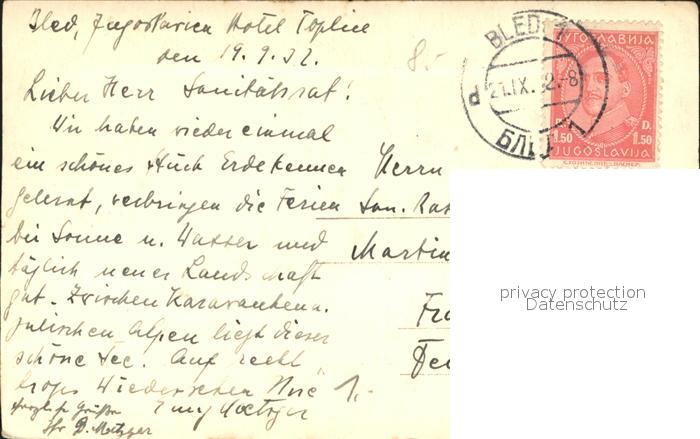 Bled, Jugoslavien Hotel Toplice
den 19.9.32.
Lieber Herr Sanitätsrat!
Wir haben wieder einmal
ein schönes Stück Erde kennen
gelernt, verbringen die Ferien
bei Sonne u. Wasser und
täglich neuer Landschaft
gut. Zwischen Karawanken u.
julischen Alpen liegt dieser
schöne See. Auf recht
Wiedersehen
Herzliche Grüße
Metzger
Herrn
San. Rat
Martin
1.-
85
BLED
21.IX.32.-8
БЛЕД
ЈУГОСЛАВИЈА
P. D.
1.50 1.50
JUGOSLAVIJA
privacy protection
Datenschutz